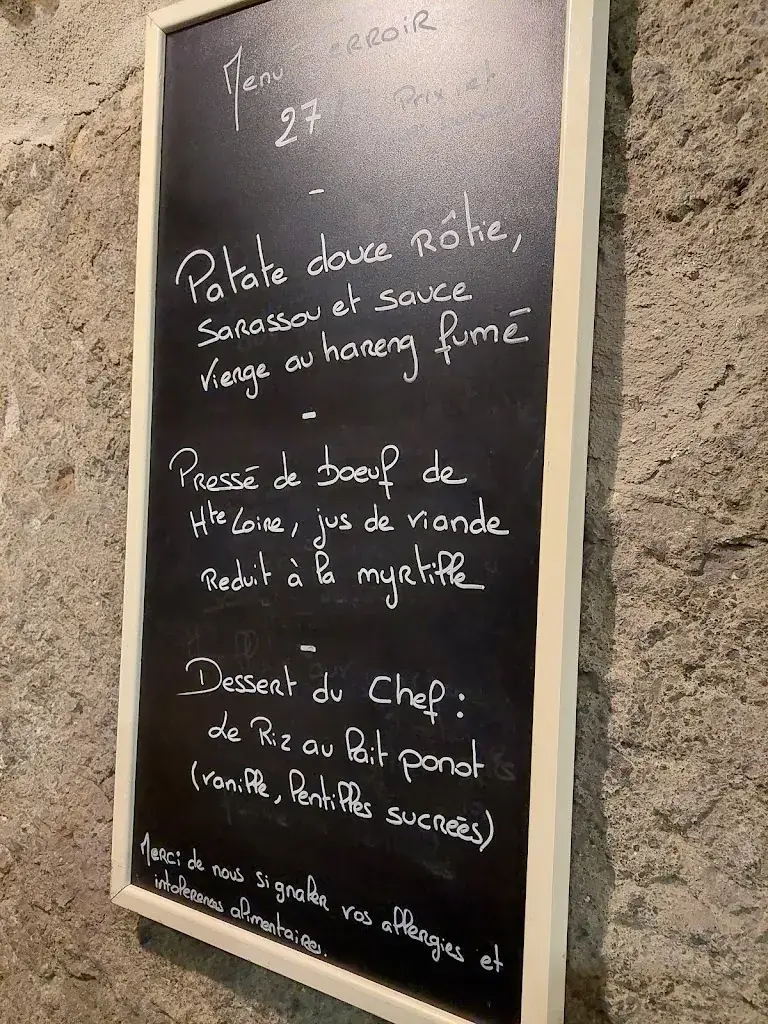 Menu TERROIR
27 Prix et
-
Patate douce Rôtie,
SARASSOU et sauce
vierge au hareng fumé
-
Pressé de boeuf de
Hte Loire, jus de viande
Reduit à la myrtille
-
Dessert du Chef :
Le Riz au lait ponot
(vanille, lentilles sucrées)
Merci de nous signaler vos allergies et
intolerences alimentaires.